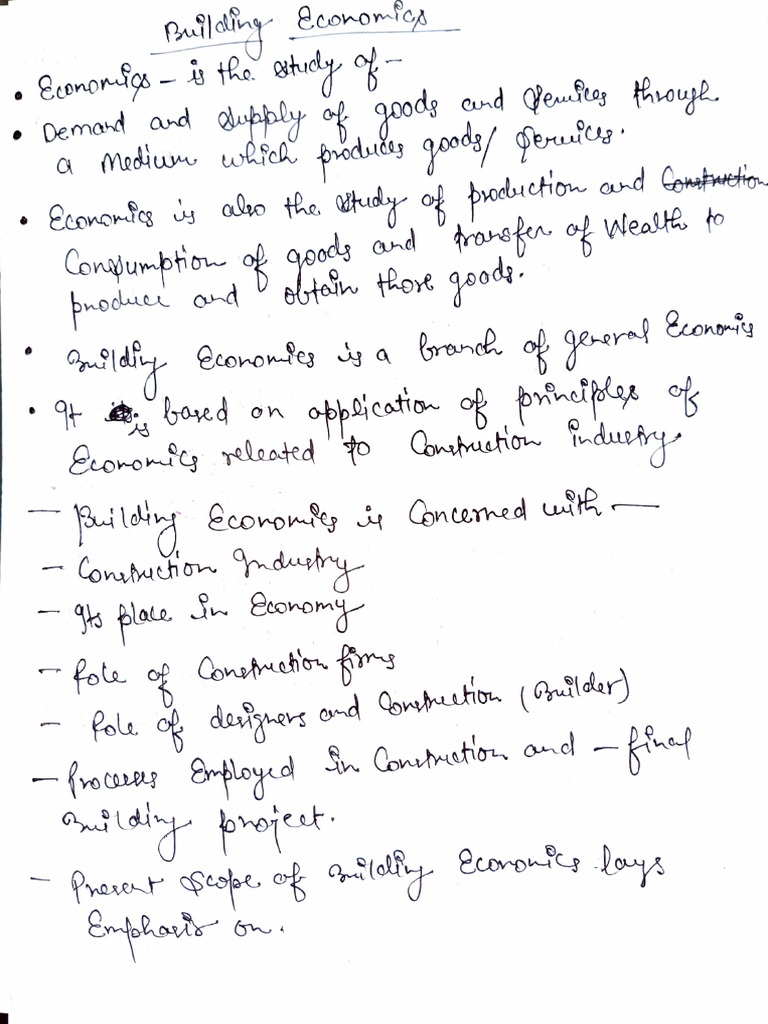 Building Economics
• Economics – is the study of –
• Demand and supply of goods and services through
a Medium which produces goods/ services.
• Economics is also the study of production and Construction
Consumption of goods and transfer of Wealth to
produce and obtain those goods.
• Building Economics is a branch of general Economics
• It is based on application of principles of
Economics releated to Construction industry.
– Building Economics is Concerned with —
– Construction Industry
– Its place in Economy
– Role of Construction firms
– Role of designers and Construction (Builder)
– Process Employed in Construction and – final
Building project.
– Present scope of Building Economics lays
Emphasis on.